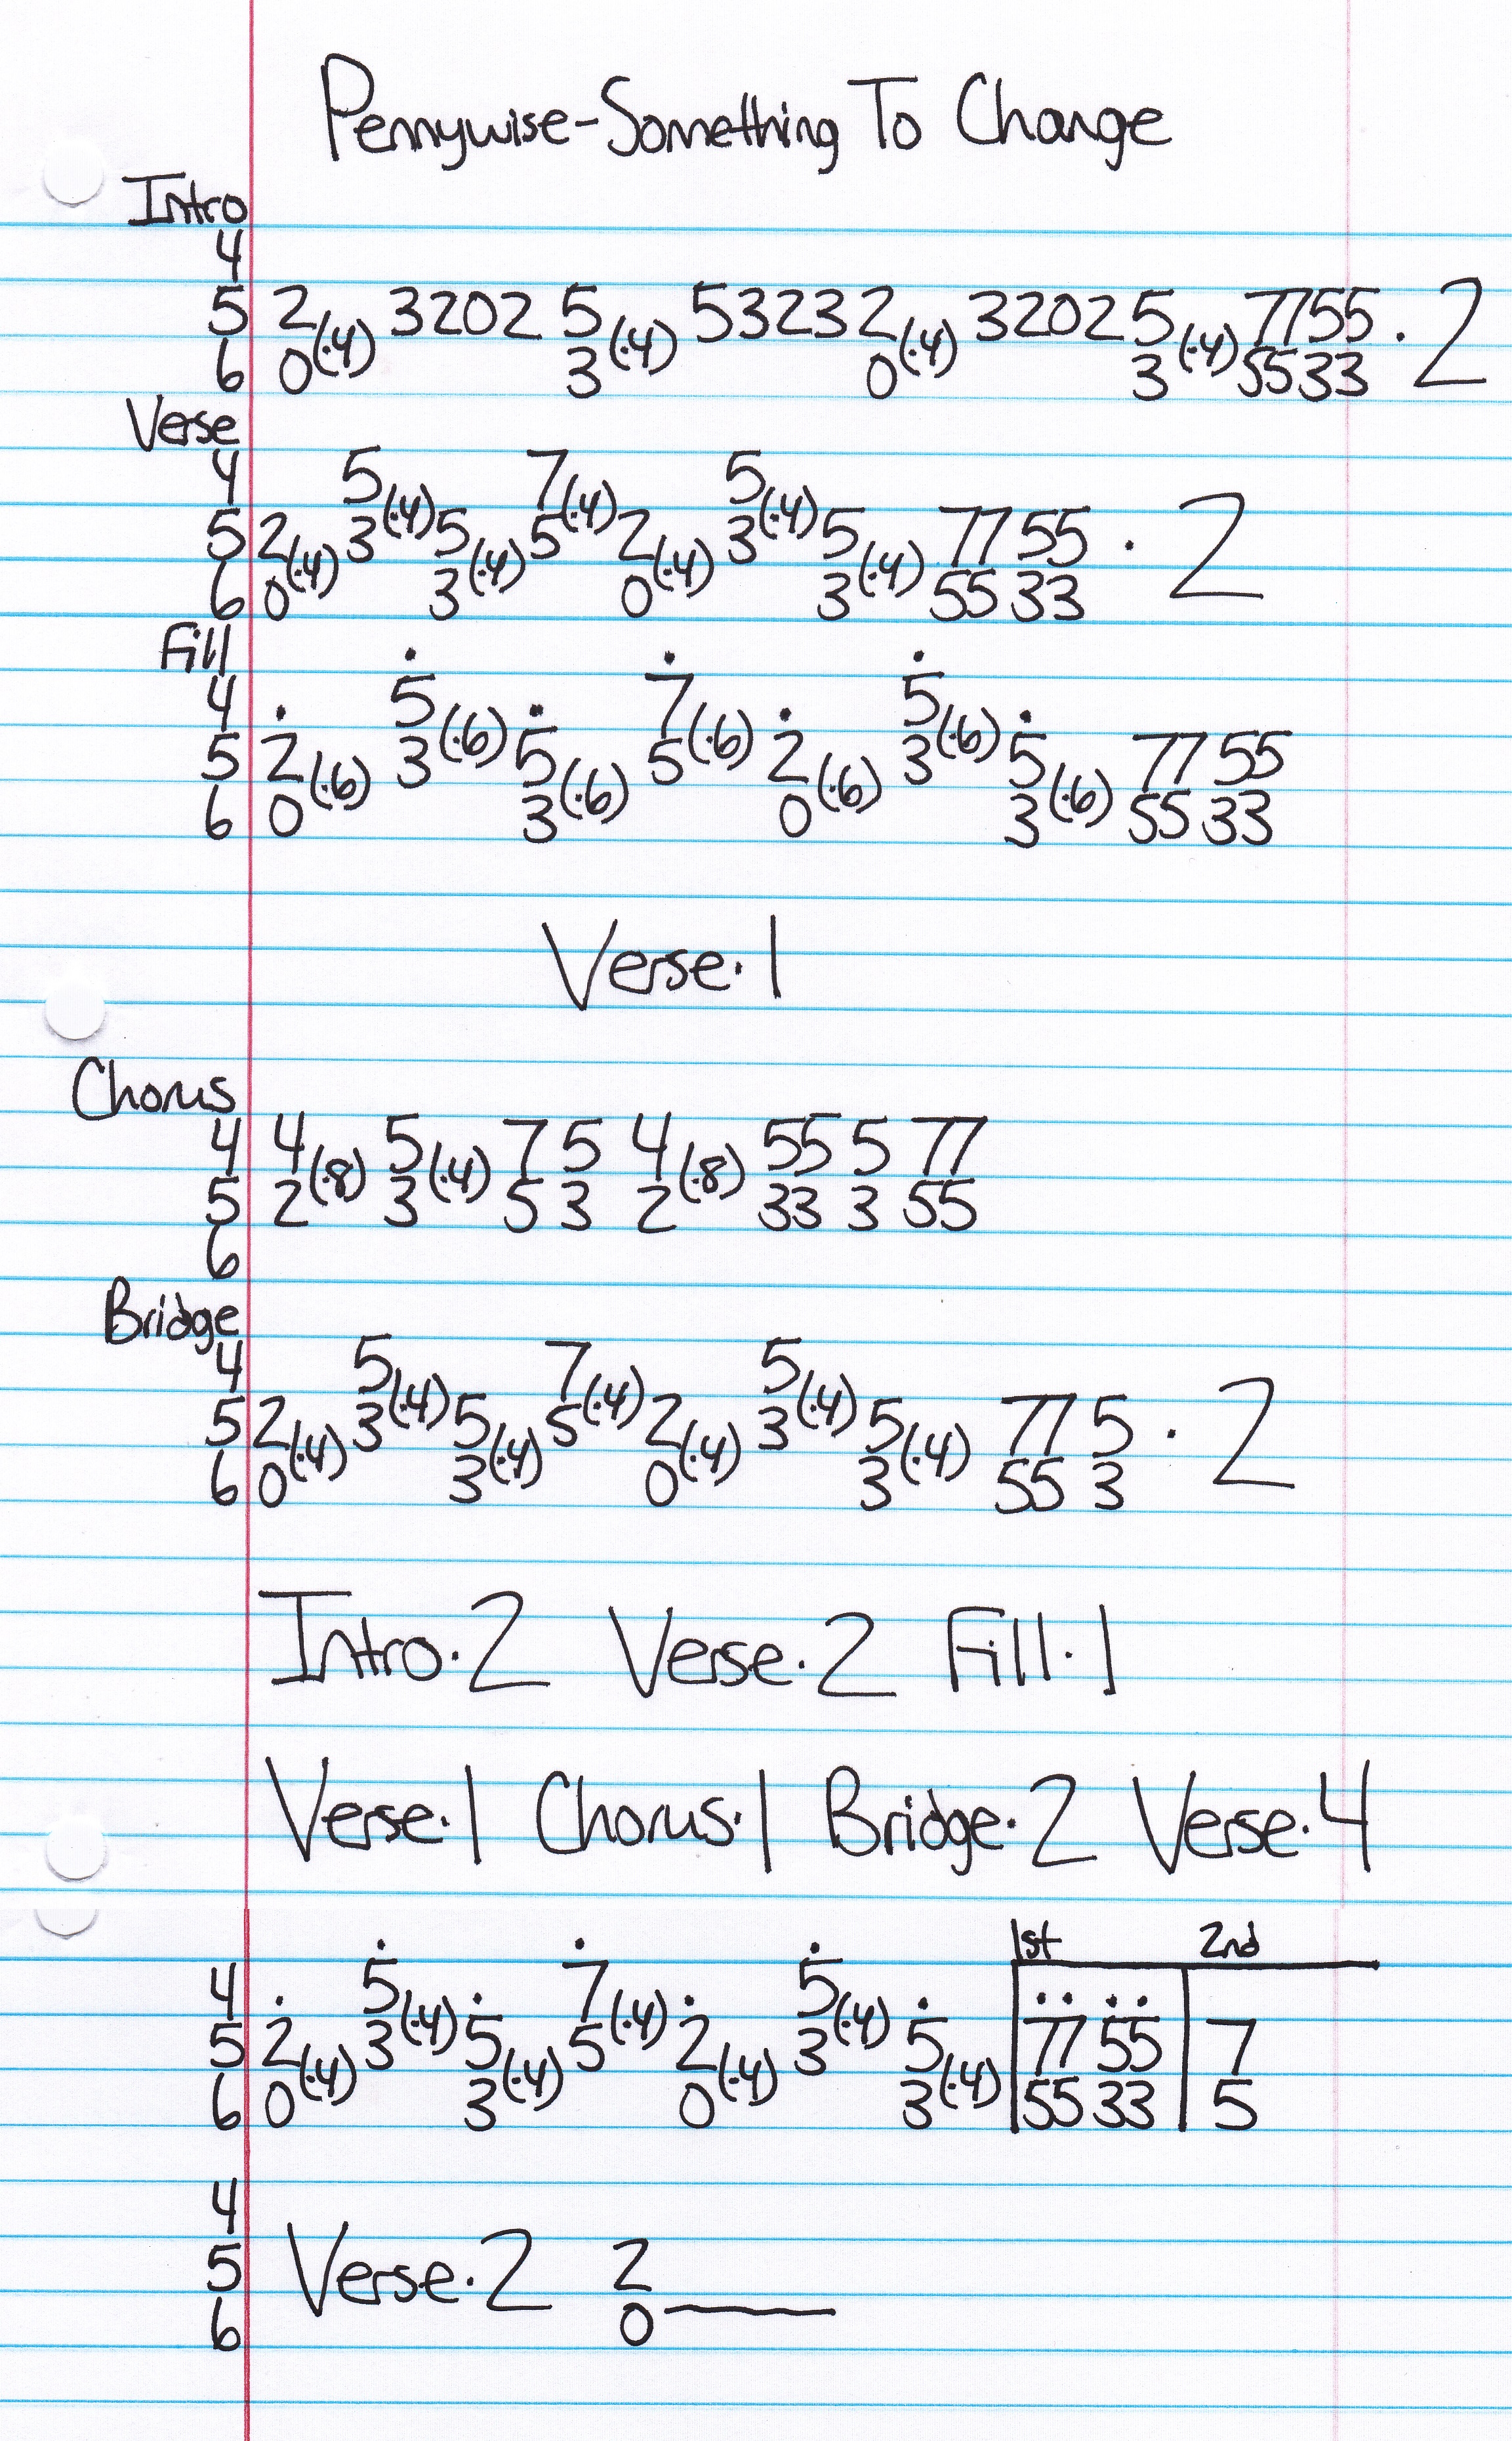 Pennywise-Something To Change
Intro
4
5 2(·4) 3202 5(·4) 53232(·4) 32025(·4)7755·2
6 0 3 0 3 5533
Verse
4 5(·4) 7(·4) 5(·4)
5 2(·4) 3 5(·4) 5 2(·4) 3 5(·4) 77 55 · 2
6 0 3 0 3 55 33
Fill
4 5(·6) 7(·6) 5(·6)
5 2(·6) 3 5(·6) 5 2(·6) 3 5(·6) 77 55
6 0 3 0 3 55 33
Verse·1
Chorus
4 4(·8) 5(·4) 7 5 4(·8) 55 5 77
5 2 3 5 3 2 33 3 55
6
Bridge
4 5(·4) 7(·4) 5(·4)
5 2(·4) 3 5(·4) 5 2(·4) 3 5(·4) 77 5 · 2
6 0 3 0 3 55 3
Intro·2 Verse·2 Fill·1
Verse·1 Chorus·1 Bridge·2 Verse·4
1st 2nd
4 5(·4) 7(·4) 5(·4)
5 2(·4) 3 5(·4) 5 2(·4) 3 5(·4) 77 55 7
6 0 3 0 3 55 33 5
4
5 Verse·2 2
6 0